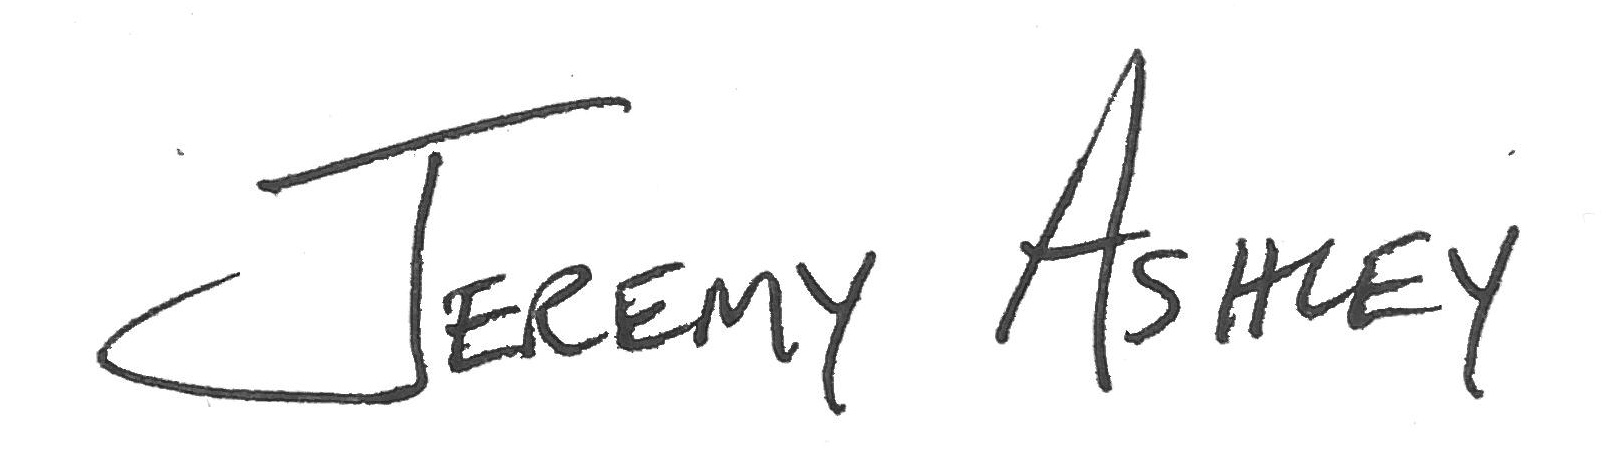 JEREMY ASHLEY